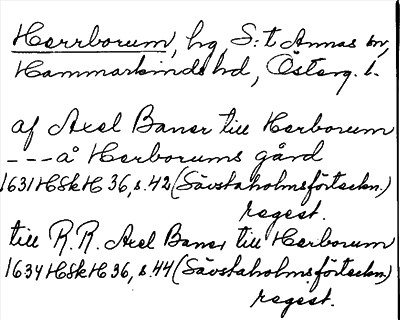 Herrborum, hg, S:t Annas sn,
Hammarkinds hd, Österg. l.
af Axel Baner till Herborum
--- å Herborums gård
1631 HSkH 36, s. 42 (Sävstaholmsförteckn.)
regest.
till R.R. Axel Baner till Herborum
1634 HSkH 36, s. 44 (Sävstaholmsförteckn.)
regest.